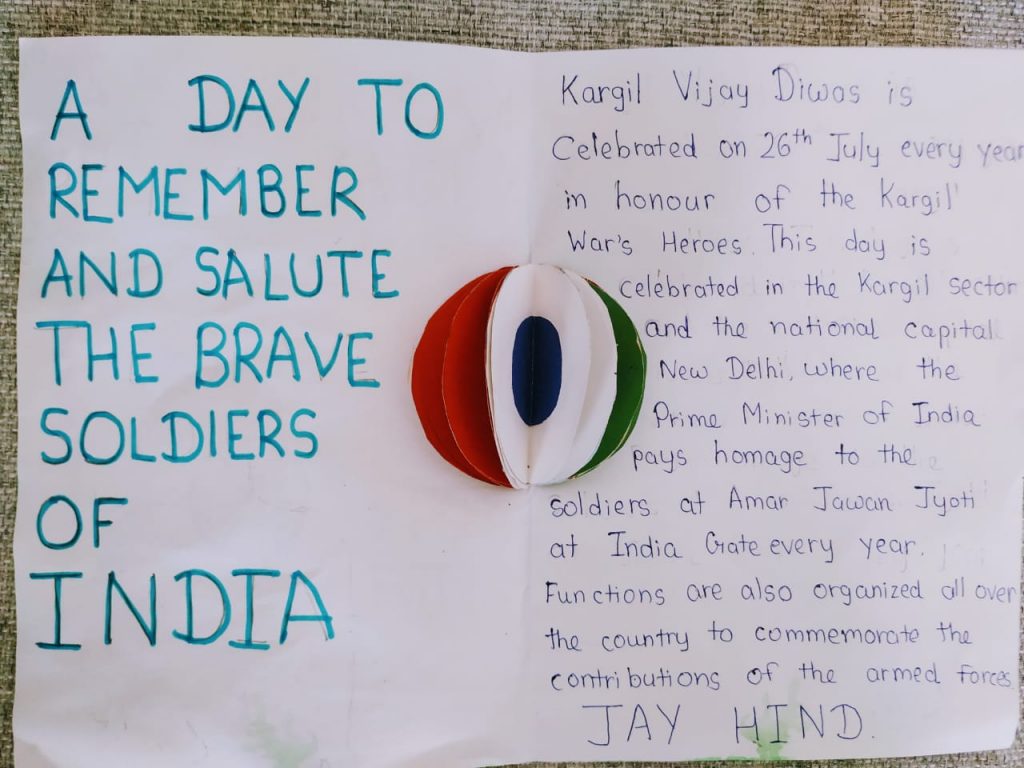 A DAY TO
REMEMBER
AND SALUTE
THE BRAVE
SOLDIERS
OF
INDIA
Kargil Vijay Diwas is
Celebrated on 26th July every year
in honour of the Kargil'
War's Heroes. This day is
celebrated in the Kargil sector
and the national capital
New Delhi, where the
Prime Minister of India
pays homage to the
soldiers at Amar Jawan Jyoti
at India Gate every year.
Functions are also organized all over
the country to commemorate the
contributions of the armed forces.
JAY HIND.